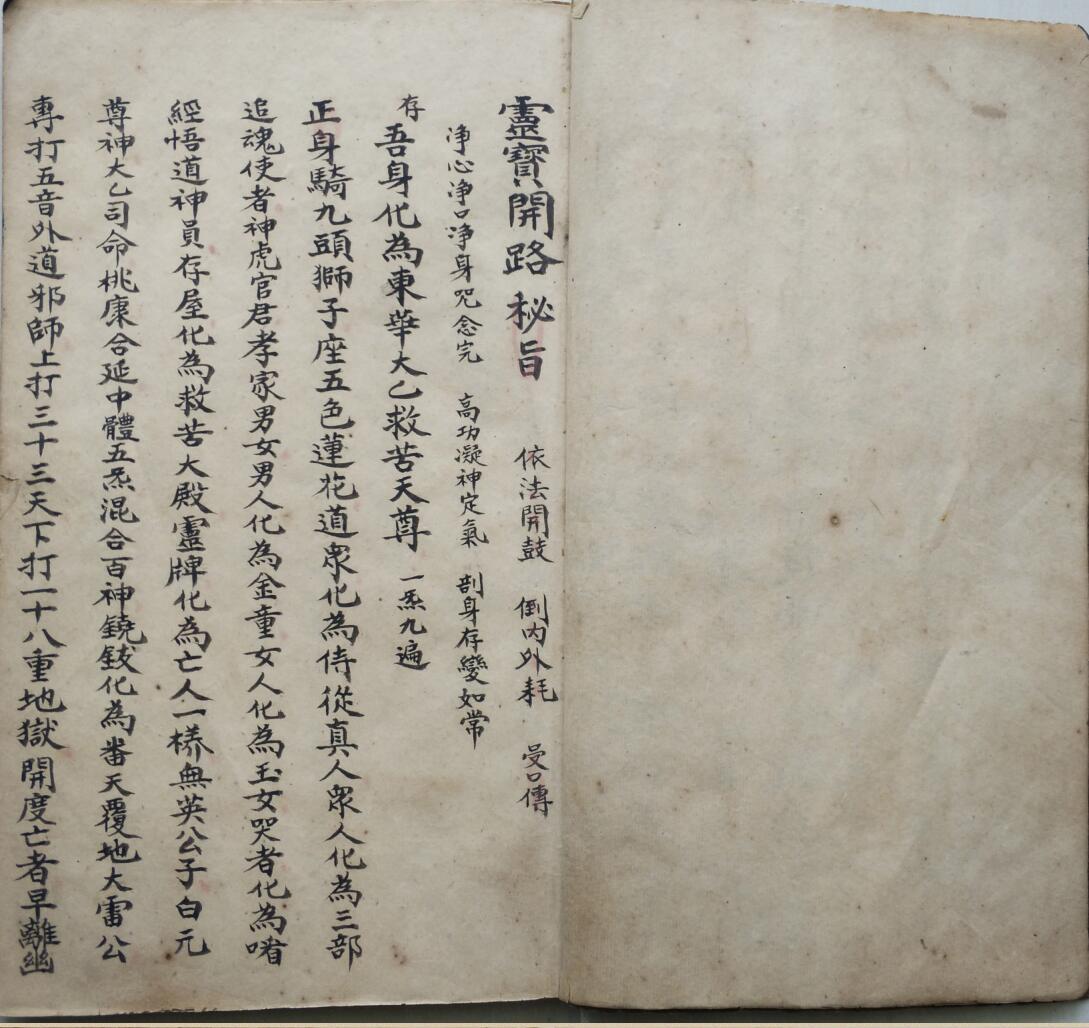 靈寶開路秘旨 依法開鼓 倒內外耗 受口傳
淨心淨口淨身咒念完 高功凝神定氣 剖身存變如常
存 吾身化為東華大乙救苦天尊 一炁九遍
正身騎九頭獅子座五色蓮花道眾化為侍從真人眾人化為三部
追魂使者神虎官君孝家男女男人化為金童女人化為玉女哭者化為啫
經悟道神員存屋化為救苦大殿靈牌化為亡人一樣無英公子白元
尊神大乙司命桃康合延中體五炁混合百神鐃鈸化為番天覆地大雷公
專打五音外道邪師上打三十三天下打一十八重地獄開度亡者早離幽